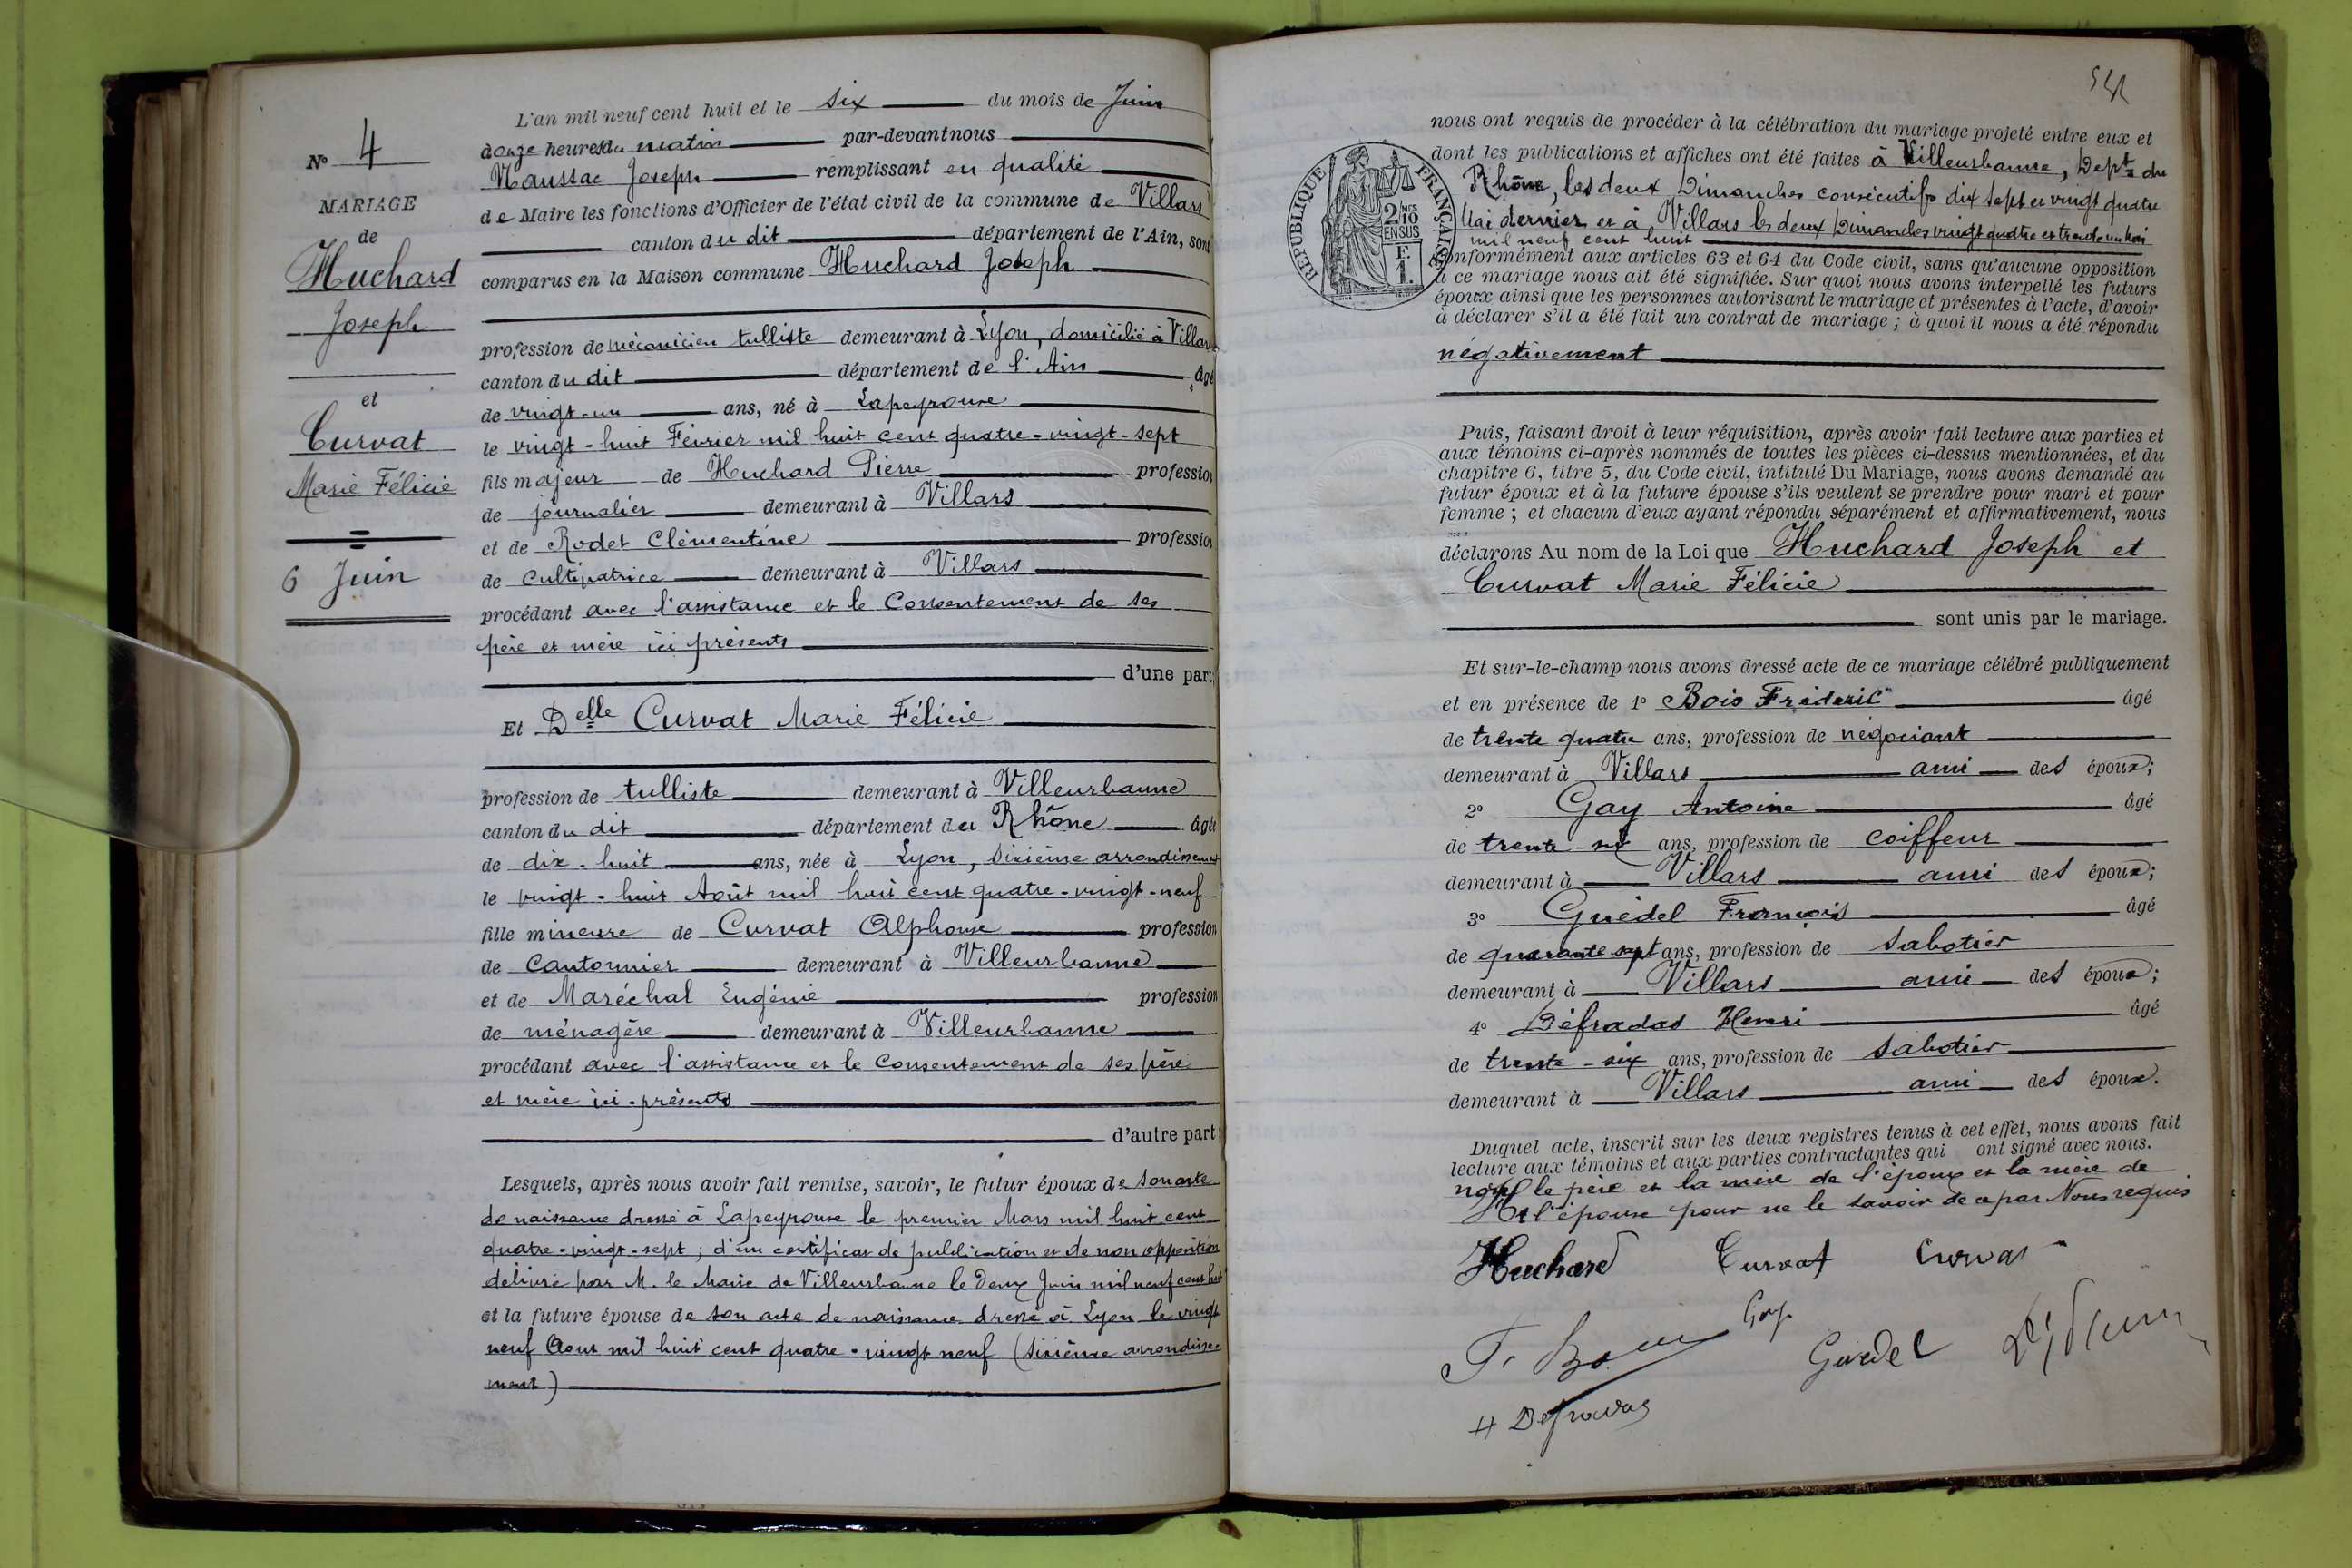 N° 4
MARIAGE
de
Huchard
Joseph
et
Curvat
Marie Félicie
6 Juin
L'an mil neuf cent huit et le six du mois de Juin
heures du matin par-devant nous
Naussac Joseph remplissant en qualité
de Maire les fonctions d'Officier de l'état civil de la commune de Villars
canton du dit département de l'Ain, sont
comparus en la Maison commune Huchard Joseph
profession de mécanicien tulliste demeurant à Lyon, domicilié à Villars
canton du dit département de l'Ain âgé
de vingt-un ans, né à Lapeyrouse
le vingt-huit Février mil huit cent quatre-vingt-sept
fils majeur de Huchard Pierre profession
de journalier demeurant à Villars
et de Rodet Clémentine profession
de Cultivatrice demeurant à Villars
procédant avec l'assistance et le Consentement de ses
père et mère ici présents
d'une part;
Et Delle Curvat Marie Félicie
profession de tulliste demeurant à Villeurbanne
canton du dit département du Rhône âgée
de dix-huit ans, née à Lyon, sixième arrondissement
le vingt-huit Août mil huit cent quatre-vingt-neuf
fille mineure de Curvat Alphonse profession
de Cantonnier demeurant à Villeurbanne
et de Maréchal Eugénie profession
de ménagère demeurant à Villeurbanne
procédant avec l'assistance et le Consentement de ses père
et mère ici-présents
d'autre part;
Lesquels, après nous avoir fait remise, savoir, le futur époux de son acte
de naissance dressé à Lapeyrouse le premier Mars mil huit cent
quatre-vingt-sept; d'un certificat de publication et de non opposition
délivré par M. le Maire de Villeurbanne le deux Juin mil neuf cent huit
et la future épouse de son acte de naissance dressé à Lyon le vingt
neuf Aout mil huit cent quatre-vingt neuf (sixième arrondisse-
ment)
nous ont requis de procéder à la célébration du mariage projeté entre eux et
dont les publications et affiches ont été faites à Villeurbanne, Dept du
Rhône, les deux Dimanches consécutifs dix sept et vingt quatre
Mai dernier et à Villars les deux Dimanches vingt quatre et trente un Mai
mil neuf cent huit
RÉPUBLIQUE FRANÇAISE
2/10MES
EN SUS
F.
1.
conformément aux articles 63 et 64 du Code civil, sans qu'aucune opposition
à ce mariage nous ait été signifiée. Sur quoi nous avons interpellé les futurs
époux ainsi que les personnes autorisant le mariage et présentes à l'acte, d'avoir
à déclarer s'il a été fait un contrat de mariage; à quoi il nous a été répondu
négativement
Puis, faisant droit à leur réquisition, après avoir fait lecture aux parties et
aux témoins ci-après nommés de toutes les pièces ci-dessus mentionnées, et du
chapitre 6, titre 5, du Code civil, intitulé Du Mariage, nous avons demandé au
futur époux et à la future épouse s'ils veulent se prendre pour mari et pour
femme; et chacun d'eux ayant répondu séparément et affirmativement, nous
déclarons Au nom de la Loi que Huchard Joseph et
Curvat Marie Félicie
sont unis par le mariage.
Et sur-le-champ nous avons dressé acte de ce mariage célébré publiquement
et en présence de 1° Bois Frédéric âgé
de trente quatre ans, profession de négociant
demeurant à Villars ami des époux;
2° Gay Antoine âgé
de trente-six ans, profession de coiffeur
demeurant à Villars ami des époux;
3° Guédel François âgé
de quarante sept ans, profession de Sabotier
demeurant à Villars ami des époux;
4° Défradas Henri âgé
de trente-six ans, profession de Sabotier
demeurant à Villars ami des époux.
Duquel acte, inscrit sur les deux registres tenus à cet effet, nous avons fait
lecture aux témoins et aux parties contractantes qui ont signé avec nous.
le père et la mère de l'époux et la mère de
l'épouse pour ne le savoir de ce par Nous requis
Huchard Curvat Curvat
F. Bois Gay
Guedel
H Defradas